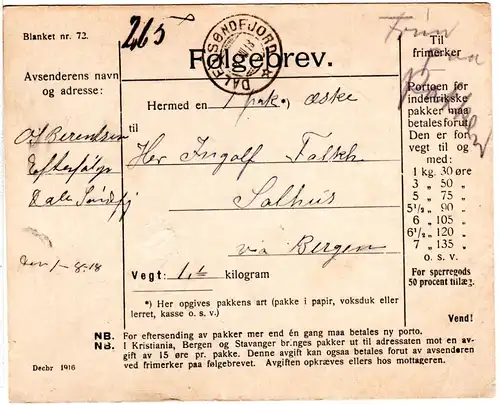 Blanket nr. 72.
265
DALE I SØNDFJORD
Til
frimerker
Følgebrev.
Avsenderens navn
og adresse:
Portoen for
indenrikske
pakker maa
betales forut.
Den er for
vegt til og
med:
1 kg. 30 øre
3 „ 50 „
5 „ 75 „
5½ „ 90 „
6 „ 105 „
6½ „ 120 „
7 „ 135 „
o. s. v.
For sperregods
50 procent tillæg.
Hermed en 1 pak *) æske
til
Her Ingolf
Salhus
via Bergen
Berentsen
Efterfølger
Dale Søndfj
1-8-18
Vegt: 1, kilogram
*) Her opgives pakkens art (pakke i papir, voksduk eller
lerret, kasse o. s. v.)
Vend!
NB. For eftersending av pakker mer end én gang maa betales ny porto.
NB. I Kristiania, Bergen og Stavanger br.nges pakker ut til adressaten mot en av-
gift av 15 øre pr. pakke. Denne avgift kan ogsaa betales forut av avsenderen
ved frimerker paa følgebrevet. Avgiften opkræves ellers hos mottageren.
Decbr 1916